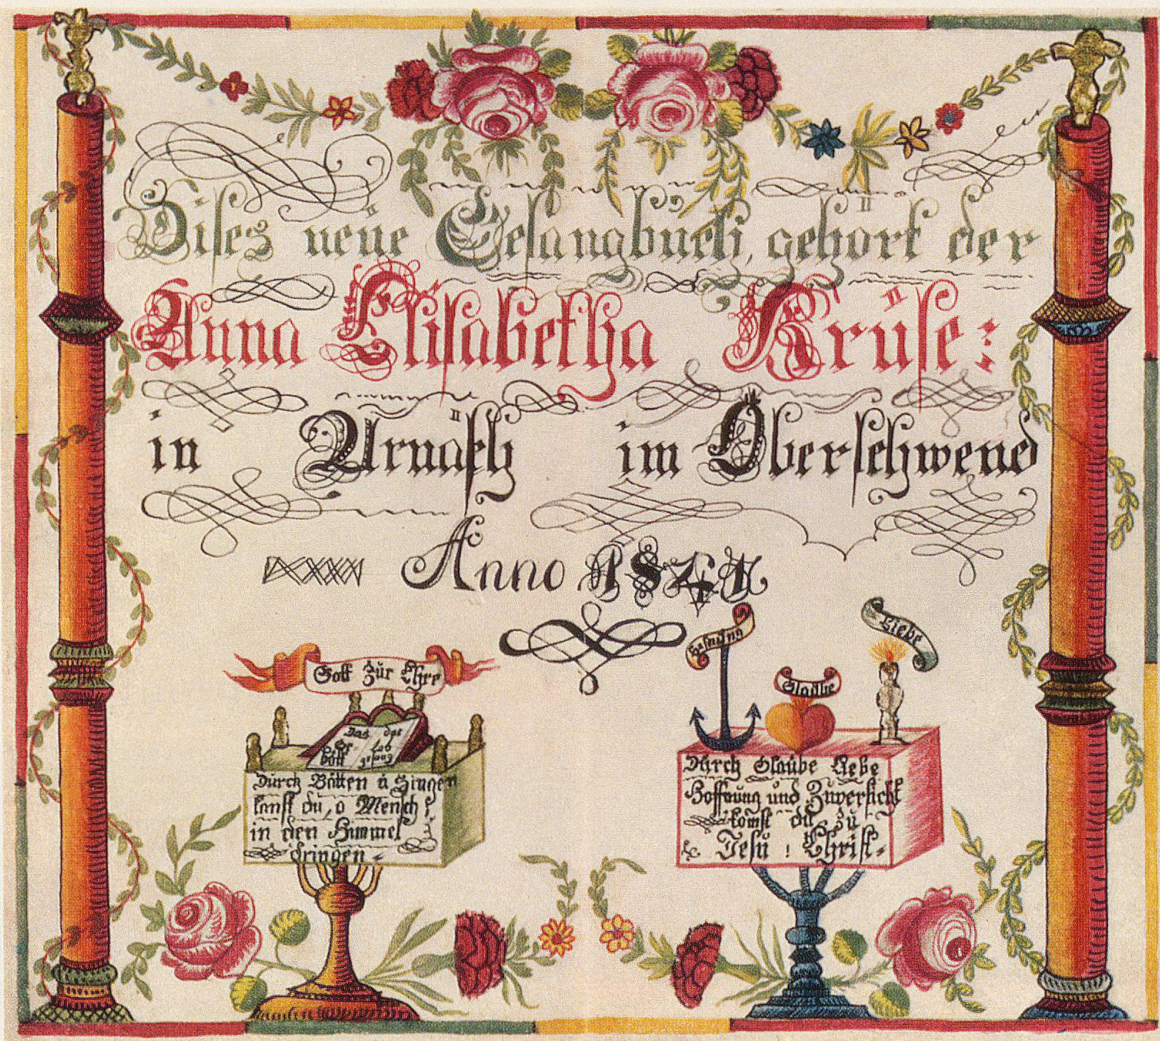 Dises neüe Gesangbüch, gehört der
Anna Elisabetha Krüse:
in Urnäsch im Oberschwend
Anno 1841
Hofnung
Liebe
Gott zür Ehre
Glaube
Das
Gott
lob
gesang
Dürch Bätten ü Singen
kanst du, o Mensch!
in den Himmel
dringen
Dürch Glaube Liebe
Hoffnung und Zuversicht
komst du zu
Jesu! Christ